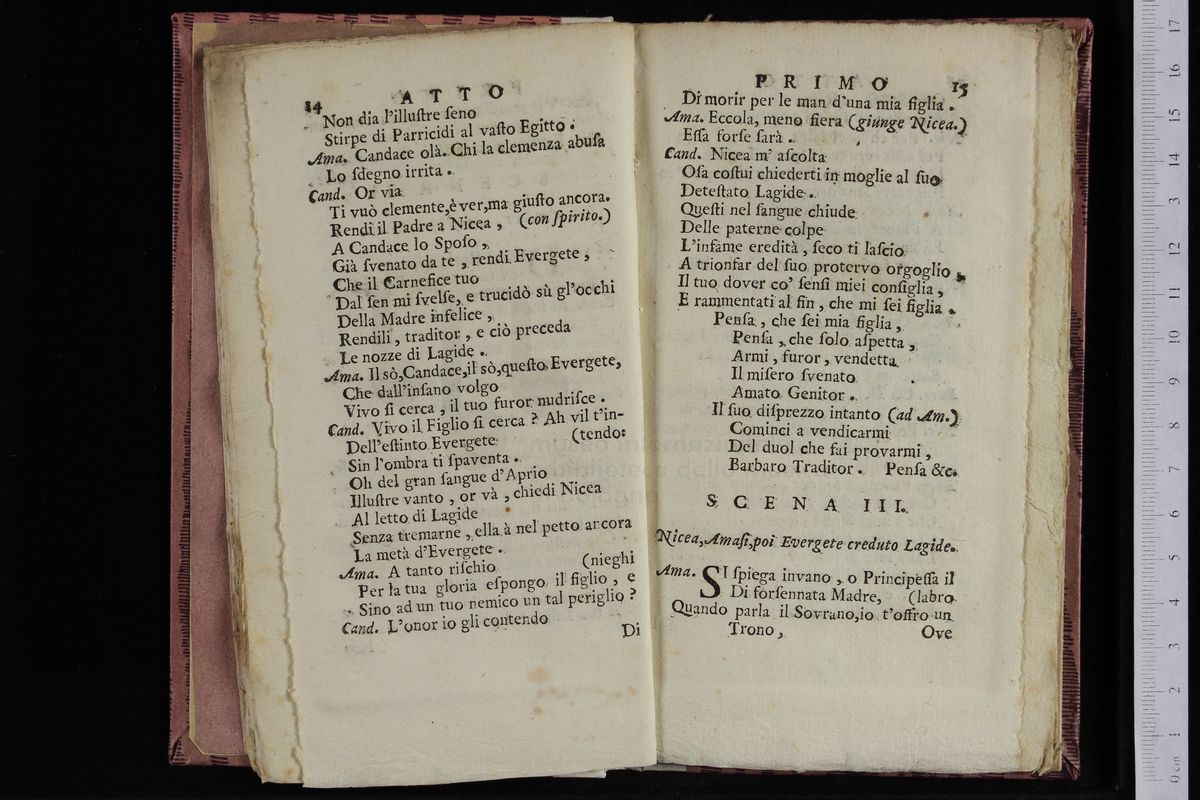 14 ATTO
Non dia l'illuſtre ſeno
Stirpe di Parricidi al vaſto Egitto.
Ama. Candace olà. Chi la clemenza abuſa
Lo ſdegno irrita.
Cand. Or via
Ti vuò clemente,è ver,ma giuſto ancora.
Rendi il Padre a Nicea, (con ſpirito.)
A Candace lo Spoſo,
Già ſvenato da te, rendi Evergete,
Che il Carnefice tuo
Dal ſen mi ſvelſe, e trucidò sù gl'occhi
Della Madre infelice,
Rendili, traditor, e ciò preceda
Le nozze di Lagide.
Ama. Il sò,Candace,il sò,queſto Evergete,
Che dall'inſano volgo
Vivo ſi cerca, il tuo furor nudriſce.
Cand. Vivo il Figlio ſi cerca? Ah vil t'in-
Dell'eſtinto Evergete (tendo:
Sin l'ombra ti ſpaventa.
Oh del gran ſangue d'Aprio
Illuſtre vanto, or và, chiedi Nicea
Al letto di Lagide
Senza tremarne, ella à nel petto ancora
La metà d'Evergete.
Ama. A tanto riſchio (nieghi
Per la tua gloria eſpongo il figlio, e
Sino ad un tuo nemico un tal periglio?
Cand. L'onor io gli contendo
Di
PRIMO 15
Di morir per le man d'una mia figlia.
Ama. Eccola, meno fiera (giunge Nicea.)
Eſſa forſe ſarà.
Cand. Nicea m'aſcolta
Oſa coſtui chiederti in moglie al ſuo
Deteſtato Lagide.
Queſti nel ſangue chiude
Delle paterne colpe
L'infame eredità, ſeco ti laſcio
A trionfar del ſuo protervo orgoglio,
Il tuo dover co' ſenſi miei conſiglia,
E rammentati al fin, che mi ſei figlia.
Penſa, che ſei mia figlia,
Penſa, che ſolo aſpetta,
Armi, furor, vendetta
Il miſero ſvenato
Amato Genitor.
Il ſuo diſprezzo intanto (ad Am.)
Cominci a vendicarmi
Del duol che fai provarmi,
Barbaro Traditor. Penſa &c.
SCENA III.
Nicea,Amaſi,poi Evergete creduto Lagide.
Ama. SI ſpiega invano, o Principeſſa il
Di forſennata Madre, (labro
Quando parla il Sovrano,io t'offro un
Trono,
Ove